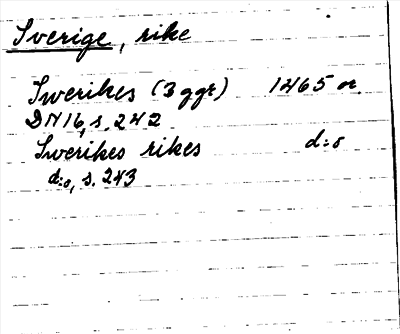 Sverige, rike
Swerikes (3 ggr) 1465 or.
DN16, s. 242
Swerikes rikes d:o
d:o, s. 243